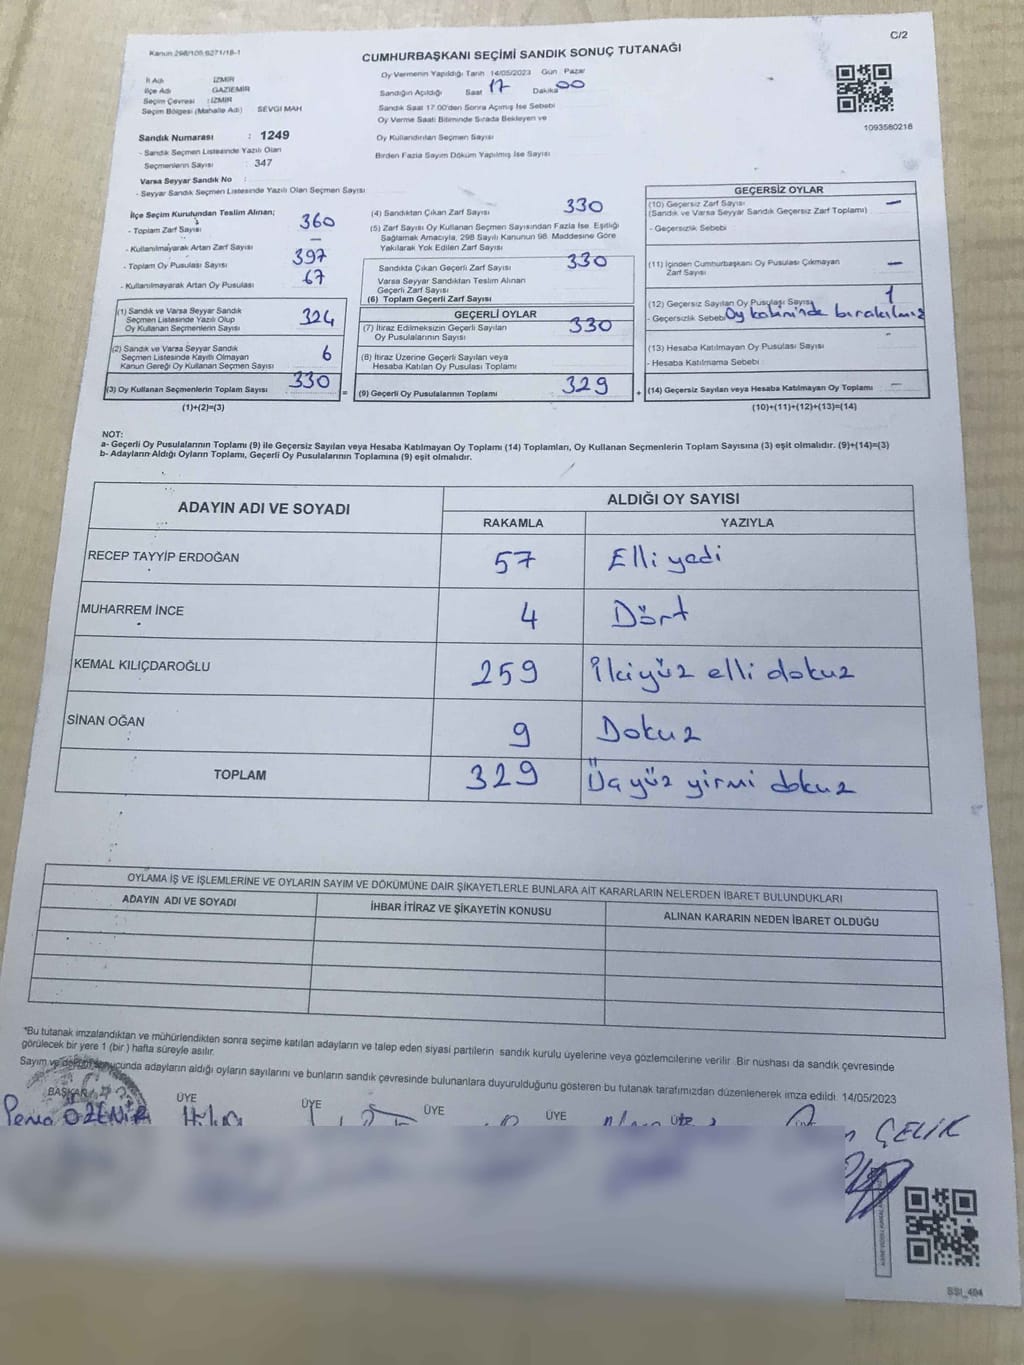 Kanun 298/105,6271/18-1
C/2
CUMHURBAŞKANI SEÇİMİ SANDIK SONUÇ TUTANAĞI
İl Adı İZMİR
İlçe Adı GAZİEMİR
Seçim Çevresi : İZMİR
Seçim Bölgesi (Mahalle Adı) SEVGİ MAH
Sandık Numarası : 1249
- Sandık Seçmen Listesinde Yazılı Olan
Seçmenlerin Sayısı : 347
Varsa Seyyar Sandık No :
- Seyyar Sandık Seçmen Listesinde Yazılı Olan Seçmen Sayısı
Oy Vermenin Yapıldığı Tarih 14/05/2023 Gün : Pazar
Sandığın Açıldığı Saat 17 Dakika 00
Sandık Saat 17.00'den Sonra Açmış İse Sebebi
Oy Verme Saati Bitiminde Sırada Bekleyen ve
Oy Kullandırılan Seçmen Sayısı
Birden Fazla Sayım Döküm Yapılmış İse Sayısı
1093560216
İlçe Seçim Kurulundan Teslim Alınan;
- Toplam Zarf Sayısı 360
- Kullanılmayarak Artan Zarf Sayısı —
- Toplam Oy Pusulası Sayısı 397
- Kullanılmayarak Artan Oy Pusulası 67
(1) Sandık ve Varsa Seyyar Sandık
Seçmen Listesinde Yazılı Olup
Oy Kullanan Seçmenlerin Sayısı 324
(2) Sandık ve Varsa Seyyar Sandık
Seçmen Listesinde Kayıtlı Olmayan
Kanun Gereği Oy Kullanan Seçmen Sayısı 6
(3) Oy Kullanan Seçmenlerin Toplam Sayısı 330 =
(1)+(2)=(3)
(4) Sandıktan Çıkan Zarf Sayısı 330
(5) Zarf Sayısı Oy Kullanan Seçmen Sayısından Fazla İse, Eşitliği
Sağlamak Amacıyla, 298 Sayılı Kanunun 98. Maddesine Göre
Yakılarak Yok Edilen Zarf Sayısı
Sandıkta Çıkan Geçerli Zarf Sayısı 330
Varsa Seyyar Sandıktan Teslim Alınan
Geçerli Zarf Sayısı
(6) Toplam Geçerli Zarf Sayısı
GEÇERLİ OYLAR
(7) İtiraz Edilmeksizin Geçerli Sayılan
Oy Pusulalarının Sayısı 330
(8) İtiraz Üzerine Geçerli Sayılan veya
Hesaba Katılan Oy Pusulası Toplamı
(9) Geçerli Oy Pusulalarının Toplamı 329 +
GEÇERSİZ OYLAR
(10) Geçersiz Zarf Sayısı —
(Sandık ve Varsa Seyyar Sandık Geçersiz Zarf Toplamı)
- Geçersizlik Sebebi
(11) İçinden Cumhurbaşkanı Oy Pusulası Çıkmayan —
Zarf Sayısı
(12) Geçersiz Sayılan Oy Pusulası Sayısı 1
- Geçersizlik Sebebi Oy kabininde bırakılmış
(13) Hesaba Katılmayan Oy Pusulası Sayısı
- Hesaba Katılmama Sebebi :
(14) Geçersiz Sayılan veya Hesaba Katılmayan Oy Toplamı —
(10)+(11)+(12)+(13)=(14)
NOT:
a- Geçerli Oy Pusulalarının Toplamı (9) ile Geçersiz Sayılan veya Hesaba Katılmayan Oy Toplamı (14) Toplamları, Oy Kullanan Seçmenlerin Toplam Sayısına (3) eşit olmalıdır. (9)+(14)=(3)
b- Adayların Aldığı Oyların Toplamı, Geçerli Oy Pusulalarının Toplamına (9) eşit olmalıdır.
ADAYIN ADI VE SOYADI
ALDIĞI OY SAYISI
RAKAMLA YAZIYLA
RECEP TAYYİP ERDOĞAN 57 Elli yedi
MUHARREM İNCE 4 Dört
KEMAL KILIÇDAROĞLU 259 İkiyüz elli dokuz
SİNAN OĞAN 9 Dokuz
TOPLAM 329 Üçyüz yirmi dokuz
OYLAMA İŞ VE İŞLEMLERİNE VE OYLARIN SAYIM VE DÖKÜMÜNE DAİR ŞİKAYETLERLE BUNLARA AİT KARARLARIN NELERDEN İBARET BULUNDUKLARI
ADAYIN ADI VE SOYADI İHBAR İTİRAZ VE ŞİKAYETİN KONUSU ALINAN KARARIN NEDEN İBARET OLDUĞU
*Bu tutanak imzalandıktan ve mühürlendikten sonra seçime katılan adayların ve talep eden siyasi partilerin sandık kurulu üyelerine veya gözlemcilerine verilir. Bir nüshası da sandık çevresinde
görülecek bir yere 1 (bir) hafta süreyle asılır.
Sayım ve döküm sonucunda adayların aldığı oyların sayılarını ve bunların sandık çevresinde bulunanlara duyurulduğunu gösteren bu tutanak tarafımızdan düzenlenerek imza edildi. 14/05/2023
BAŞKAN ÜYE ÜYE ÜYE ÜYE ÜYE
ÇELİK
SSI_404